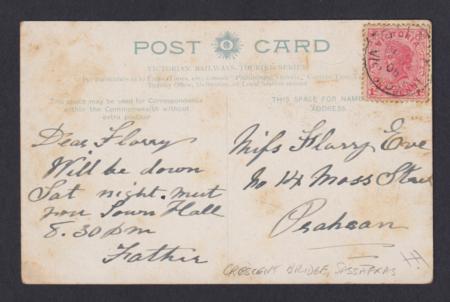 POST CARD
VICTORIAN RAILWAYS TOURIST SERIES
This space may be used for Correspondence
within the Commonwealth without
extra postage
THIS SPACE FOR NAME
ADDRESS.
Dear Florry
Will be down
Sat night. meet
you Town Hall
8.30 pm
Father
Miss Florry Eve
No 14 Moss Street
Prahran
CRESCENT BRIDGE, SASSAFRAS